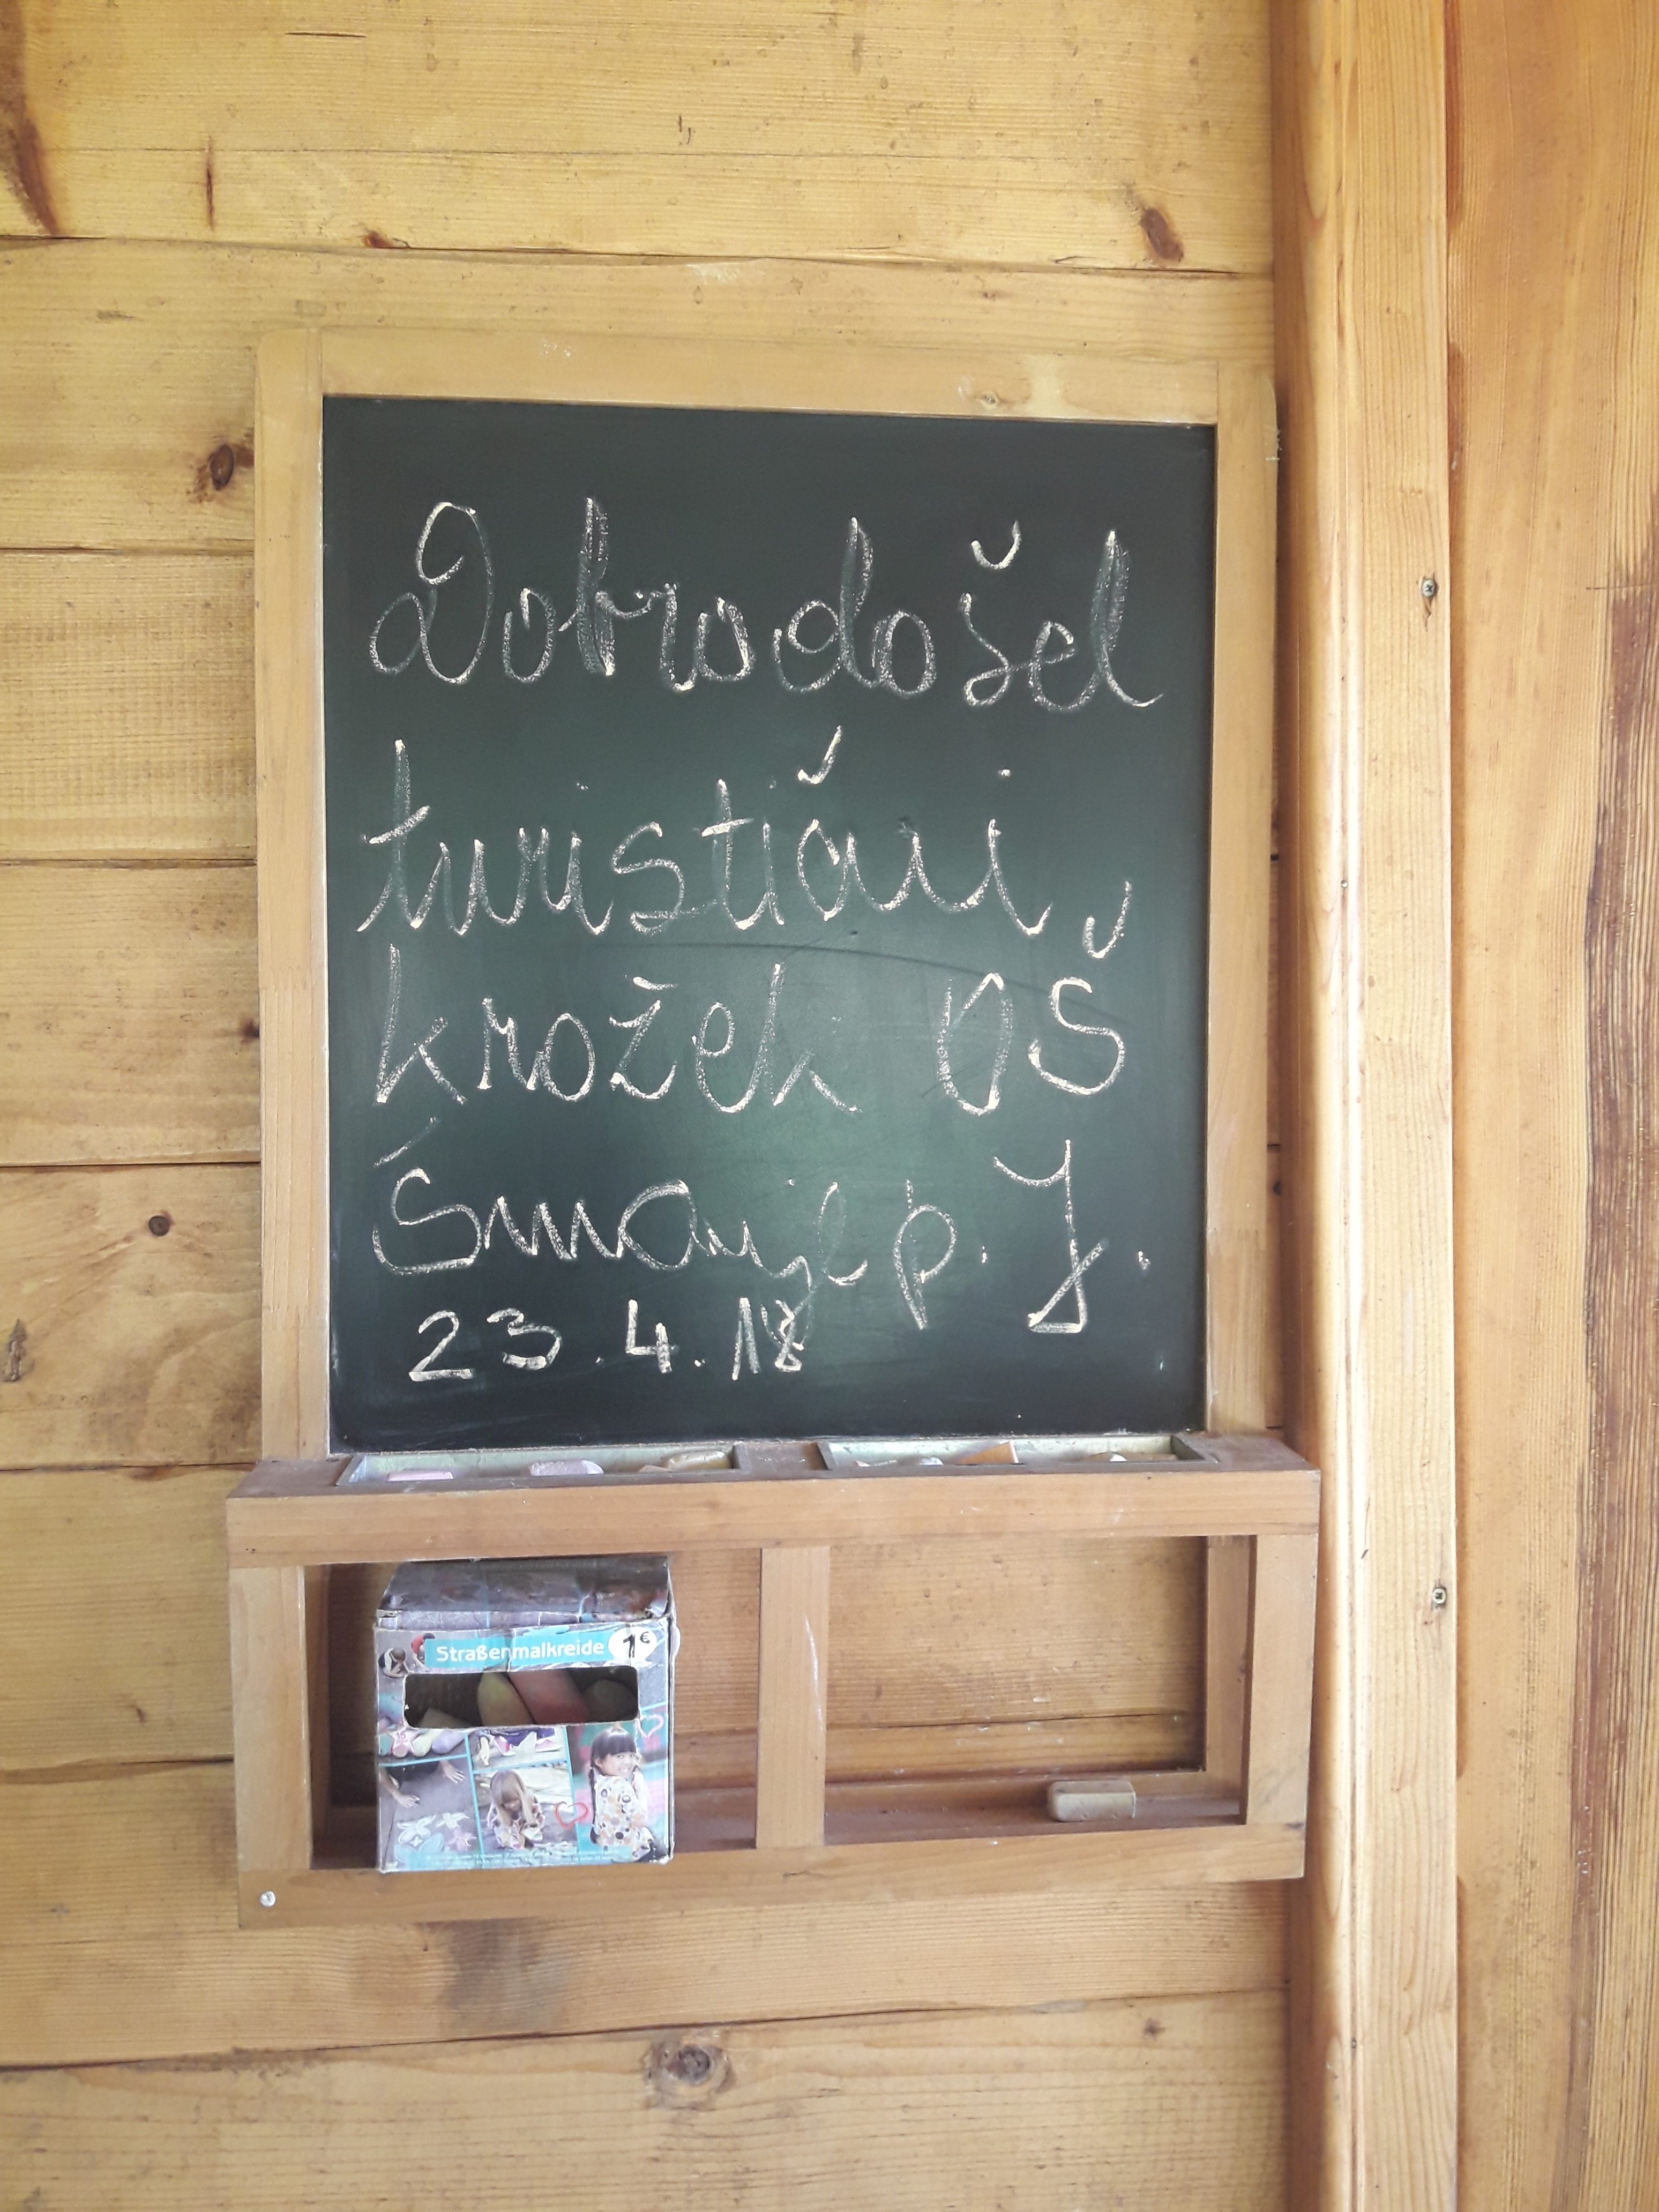 Dobrodošel
turistični
krožek OŠ
Šmarje p. J.
23.4.18
Straßenmalkreide 1€